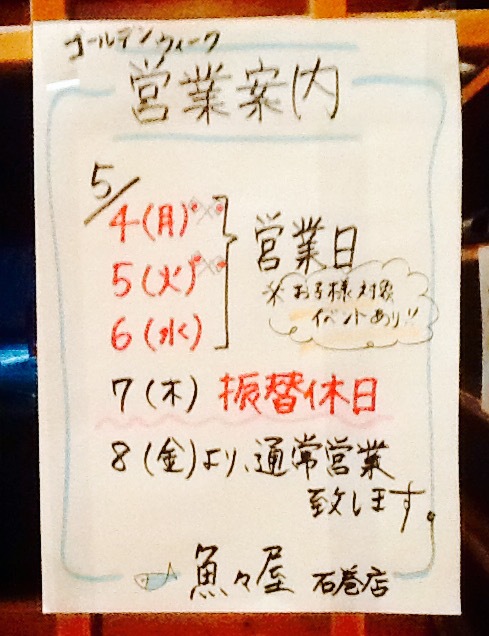 ゴールデンウィーク
営業案内
5/
4(月)
5(火)
6(水)
営業日
※お子様対象
イベントあり!!
7(木) 振替休日
8(金)より、通常営業
致します。
魚々屋 石巻店